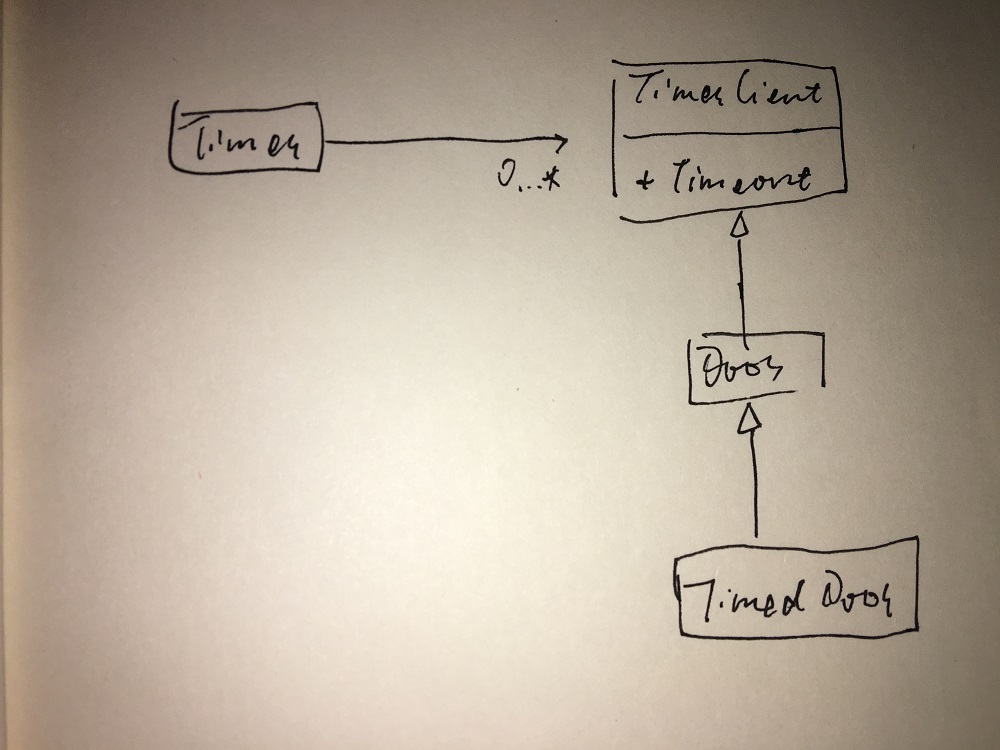 Timer
0...*
TimerClient
+ Timeout
Door
Timed Door